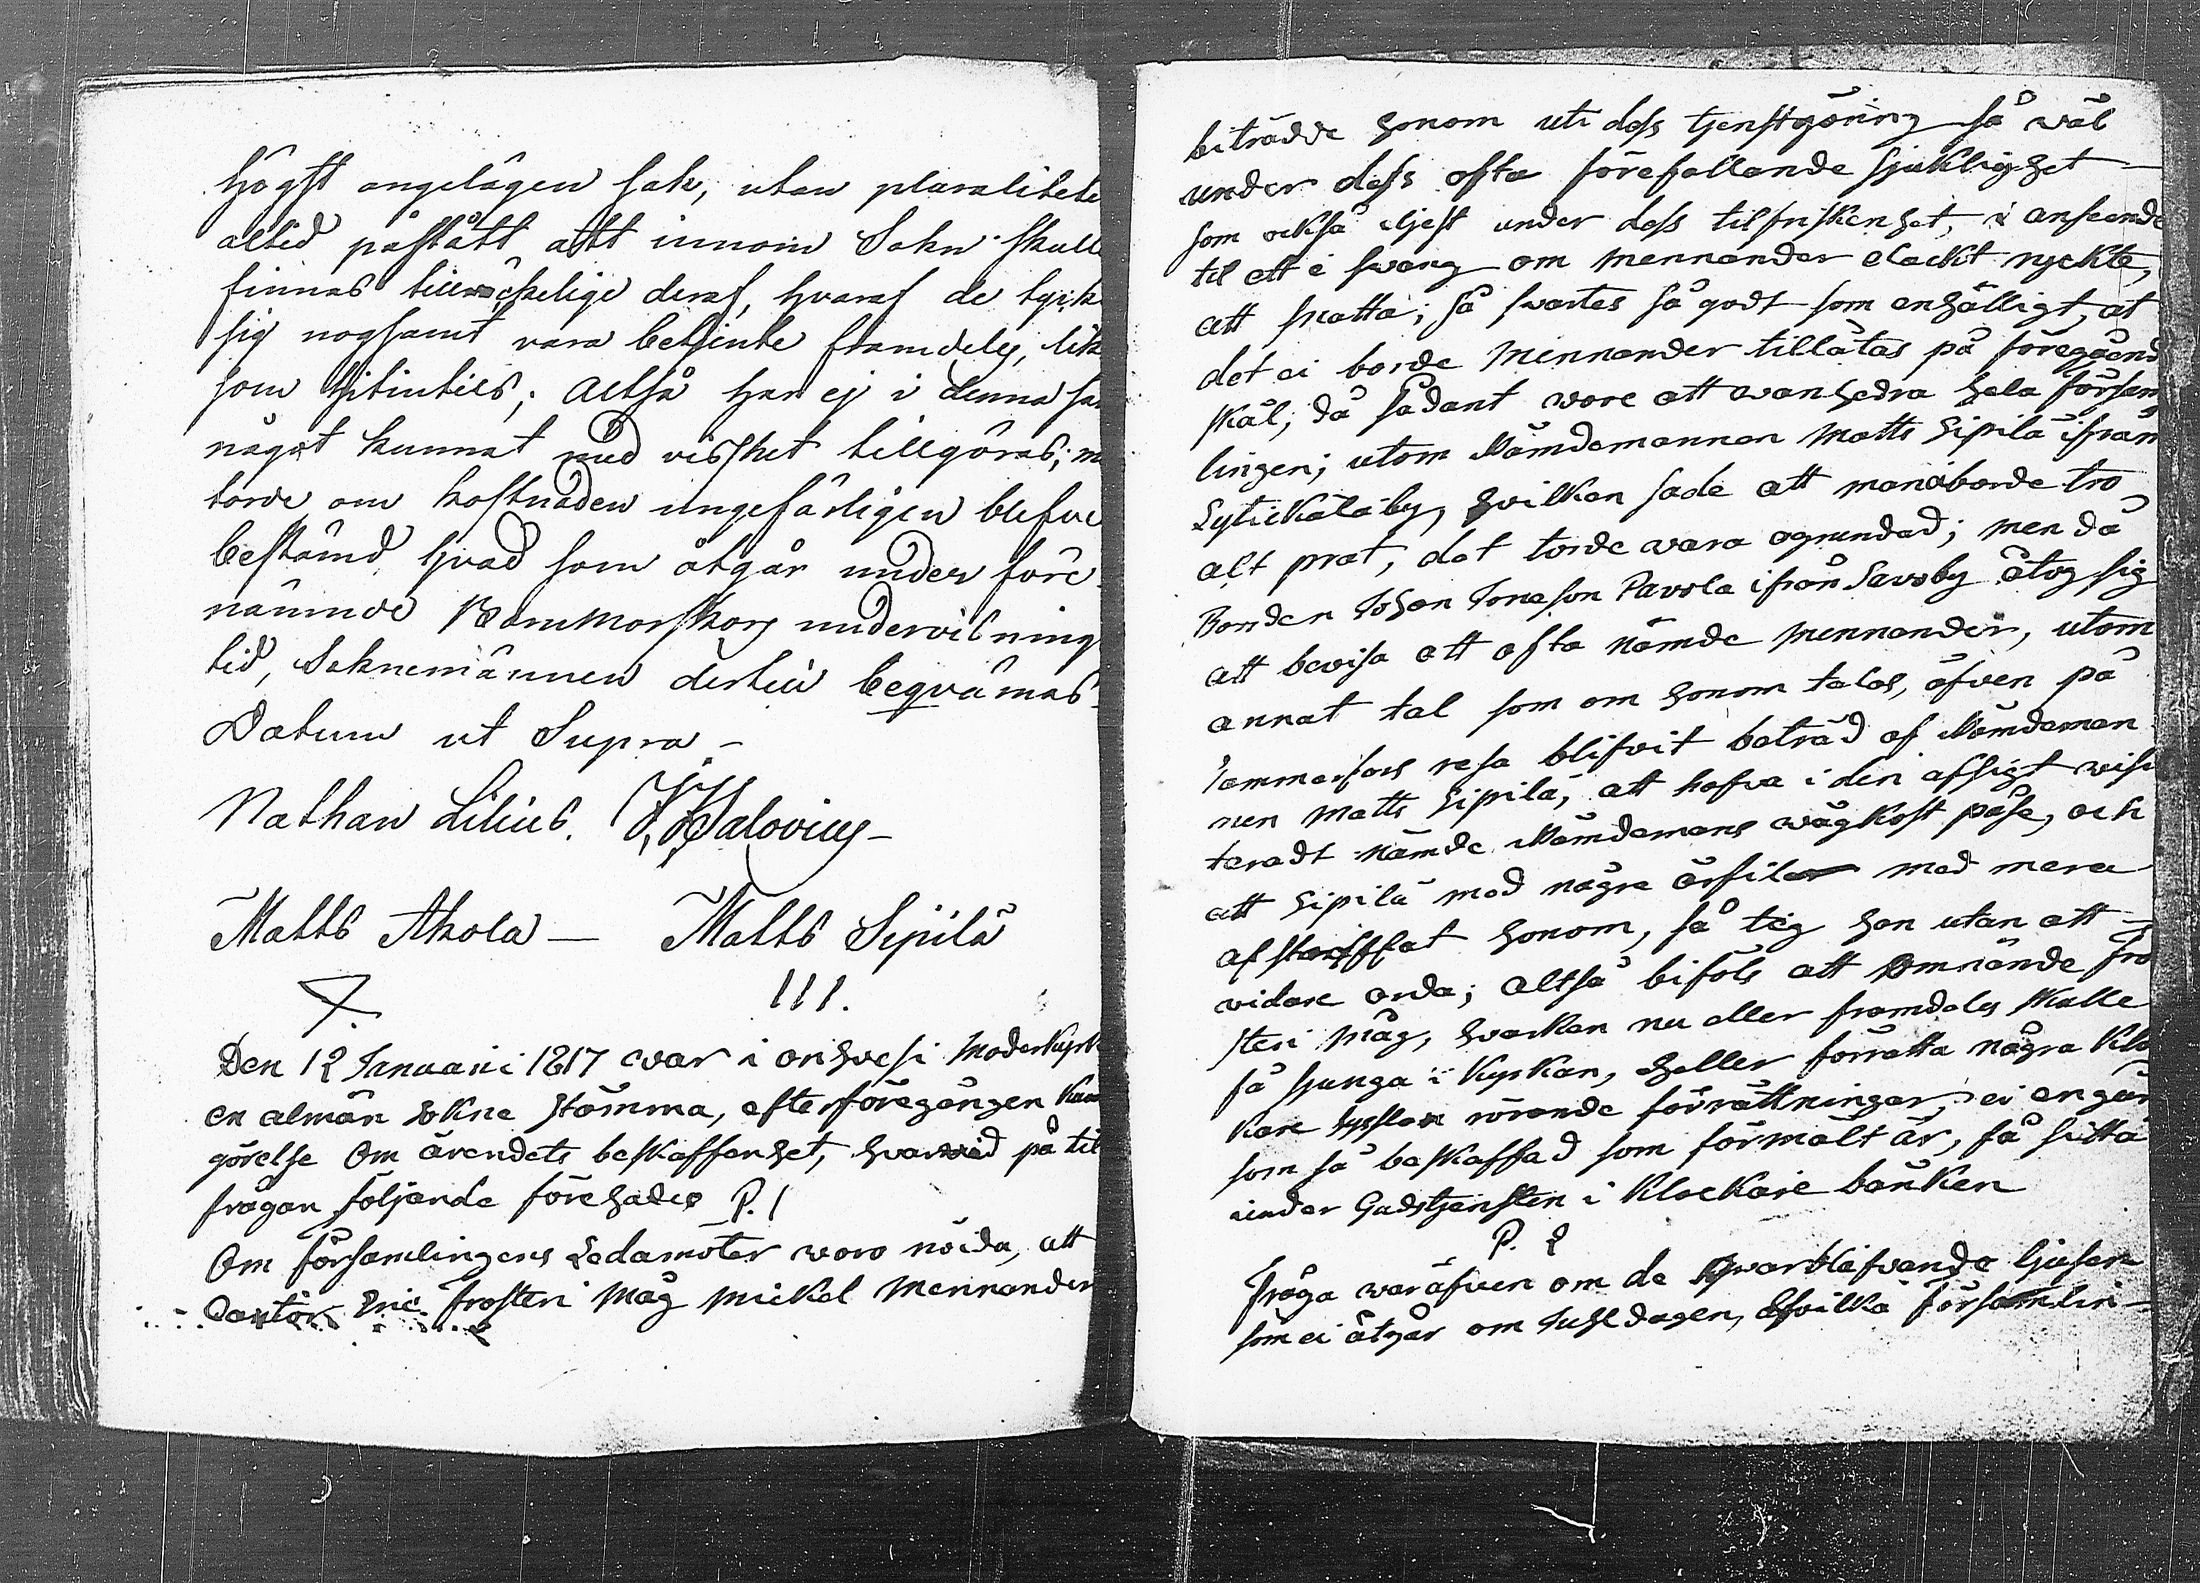 högst angelägen sak, utan pluralitete
altid påstått att innom Sokn skull
finnas tillräckelige deraf, hvaraf de tyck
sig nogsamt vara betjente framdeles, lik
som hitintils; altså har ej i denna sa
något kunnat med visshet tillgöras; m
torde om kostnaden ungefärligen blefve
bestämd hvad som åtgår under före-
nämnde Barnmorskors undervisnings
tid, Soknemännen dertill beqvämas.
Datum ut Supra –
Nathan Lilius. Salovius –
Matts Ahola – Matts Sipilä
111.
Den 12 Januarii 1817 war i orihvesi Moderkyrk
en almän Sokne Stämma, efter föregången kun
görelse Om ärendets beskaffenhet, hvarvid på til
frågan följande förehades P. 1
Om församlingens Ledamöter woro nöida, att
Cantor Eric Frosteri Måg Mickel Mennander
biträdde honom uti dess tjenstgöring så wäl
under dess ofta förefallande sjuklighet
som också eljest under dess tilfriskenhet, i anseende
til ett i swang om Mennander elackt ryckte,
att snatta; så swartes så godt som enhälligt, at
det ei borde Mennander tillåtas på föregåend
skäl, då sådant wore att wanhedra hela försam
lingen; utom Nämdemannen Matts Sipilä ifrån
Sytickälä by, hvilken sade att man ei borde tro
alt prat, det torde wara ogrundad; men då
Bonden Johan Jonason Pavola ifrån Savo by åtog sig
att bevisa att ofta nämde Mennander, utom
annat tal som om honom talas, äfven på
Tammerfors resa blifvit beträd af Nämdeman
nen Matts Sipilä, att hafva i den afsigt wisi
teradt nämde Nämdemans wägkost påse, och
att Sipilä med några örfilar med mera
afstraffat honom, så teg han utan att
vidare orda; altså biföls att Omnämde Fro
steri Måg, hvarken nu eller framdeles skulle
få sjunga i Kyrkan, heller förrätta några Klo
kare sysslan rörande förrättningar, ei en gån
som så beskaffad som förmält är, få sitta
under Gudstjensten i Klockare bänken
P. 2
Fråga war äfven om de qwarblifvande ljusen
som ei åtgår om Juhldagen, hvilka församlin-